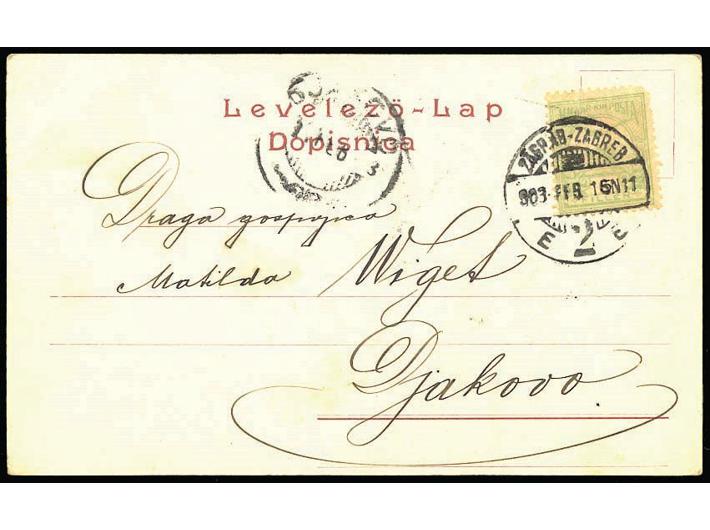 Levelező-Lap
Dopisnica
MAGYAR KIR. POSTA
ZÁGRÁB-ZAGREB
903 FEB 16 N11
2
Draga gospojica
Matilda Wiget
Djakovo.